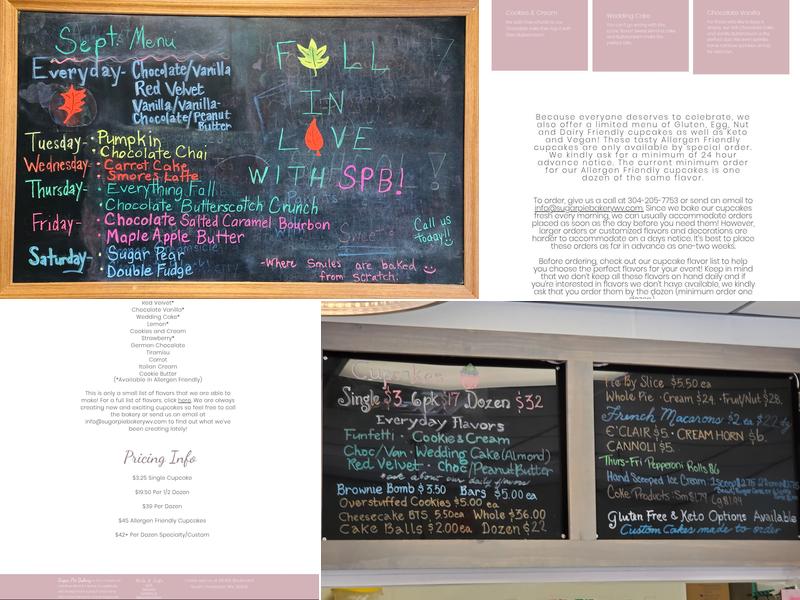 Sept. Menu
Everyday- Chocolate/Vanilla
Red Velvet
Vanilla/Vanilla-
Chocolate/Peanut
Butter
Tuesday- • Pumpkin
• Chocolate Chai
Wednesday- • Carrot Cake
• Smores Latte
Thursday- • Everything Fall
• Chocolate Butterscotch Crunch
Friday- • Chocolate Salted Caramel Bourbon
• Maple Apple Butter
Saturday- • Sugar Pear
• Double Fudge
F LL
IN
L VE
WITH SPB!
Call us
today!!
-Where Smiles are baked
from scratch:
Cookies & Cream
Wedding Cake
Chocolate Vanilla
Because everyone deserves to celebrate, we
also offer a limited menu of Gluten, Egg, Nut
and Dairy Friendly cupcakes as well as Keto
and Vegan! These tasty Allergen Friendly
cupcakes are only available by special order.
We kindly ask for a minimum of 24 hour
advance notice. The current minimum order
for our Allergen Friendly cupcakes is one
dozen of the same flavor.
To order, give us a call at 304-205-7753 or send an email to
info@sugarpiebakerywv.com. Since we bake our cupcakes
fresh every morning, we can usually accommodate orders
placed as soon as the day before you need them! However,
larger orders or customized flavors and decorations are
harder to accommodate on days notice. It's best to place
these orders as far in advance as one-two weeks.
Before ordering, check out our cupcake flavor list to help
you choose the perfect flavors for your event! Keep in mind
that we don't keep all these flavors on hand daily and if
you're interested in flavors we don't have available, we kindly
ask that you order them by the dozen (minimum order one
dozen)
Red Velvet*
Chocolate Vanilla*
Wedding Cake*
Lemon*
Cookies and Cream
Strawberry*
German Chocolate
Tiramisu
Carrot
Italian Cream
Cookie Butter
(*Available in Allergen Friendly)
This is only a small list of flavors that we are able to
make! For a full list of flavors, click here. We are always
creating new and exciting cupcakes so feel free to call
the bakery or send us an email at
info@sugarpiebakerywv.com to find out what we've
been creating lately!
Pricing Info
$3.25 Single Cupcake
$19.50 Per 1/2 Dozen
$39 Per Dozen
$45 Allergen Friendly Cupcakes
$42+ Per Dozen Specialty/Custom
Cupcakes
Single $3 6pk $17 Dozen $32
Everyday Flavors
Funfetti · Cookies & Cream
Choc/Van · Wedding Cake (Almond)
Red Velvet · Choc/Peanut Butter
*ask about our daily flavors
Brownie Bomb $3.50 Bars $5.00 ea
Overstuffed Cookies $5.00 ea
Cheesecake BTS 5.50ea Whole $36.00
Cake Balls $2.00ea Dozen $22
Pie By Slice $5.50 ea
Whole Pie · Cream $24 · Fruit/Nut $28.
French Macarons $2 ea $22 dz
E'CLAIR $5 · CREAM HORN $6
CANNOLI $5.
Thurs-Fri Pepperoni Rolls $6
Hand Scooped Ice Cream
Coke Products: Sm $1.79 Lg $1.99
Gluten Free & Keto Options Available
Custom Cakes made to order